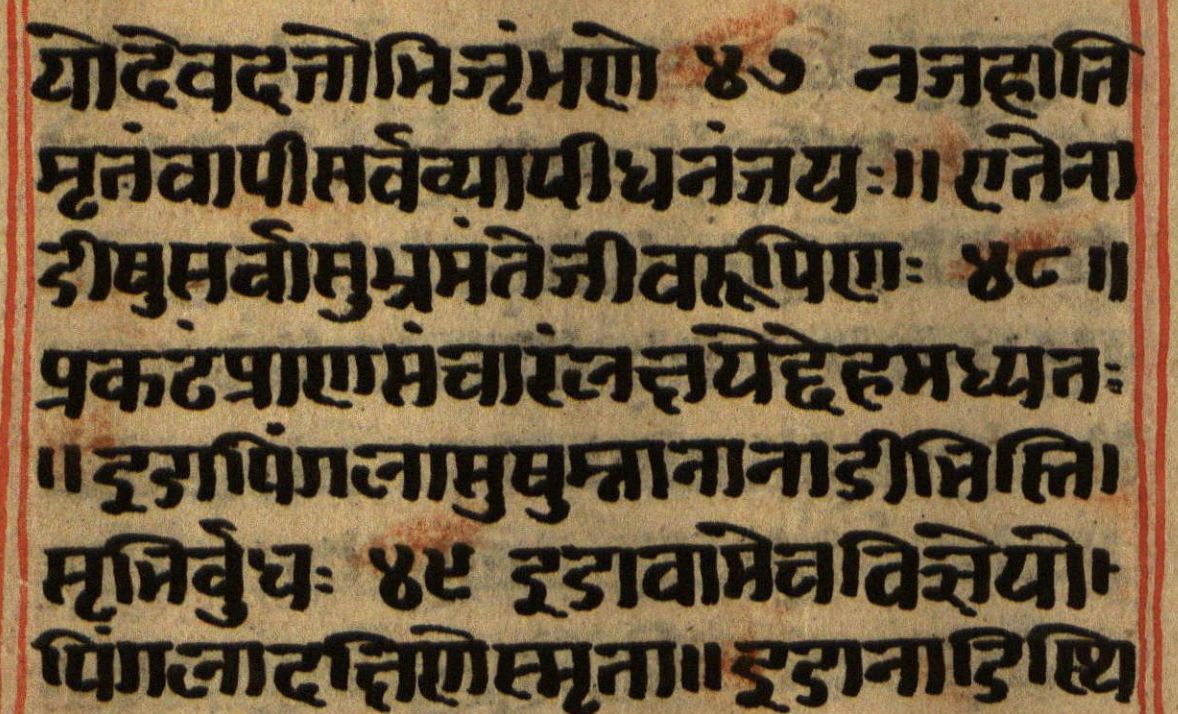 योदेवदत्तोभिजृंभणे ४७ नजहाति
मृतंवापीसर्वव्यापीधनंजयः॥ एतेना
डीषुसर्वासुभ्रमंतेजीवरूपिणः ४८॥
प्रकटंप्राणसंचारंलक्षयेद्देहमध्यतः
॥इडापिंगलासुषुम्नानानाडीभिस्ति।
सृभिर्वुधः ४९ इडावामेचविज्ञेयो।
पिंगलादक्षिणेस्मृता॥इडानाडिस्थि